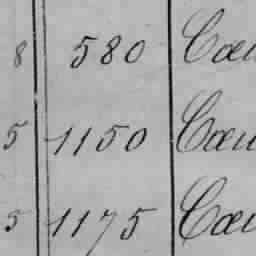 8 580 Cœu
5 1150 Cœu
5 1175 Cœu